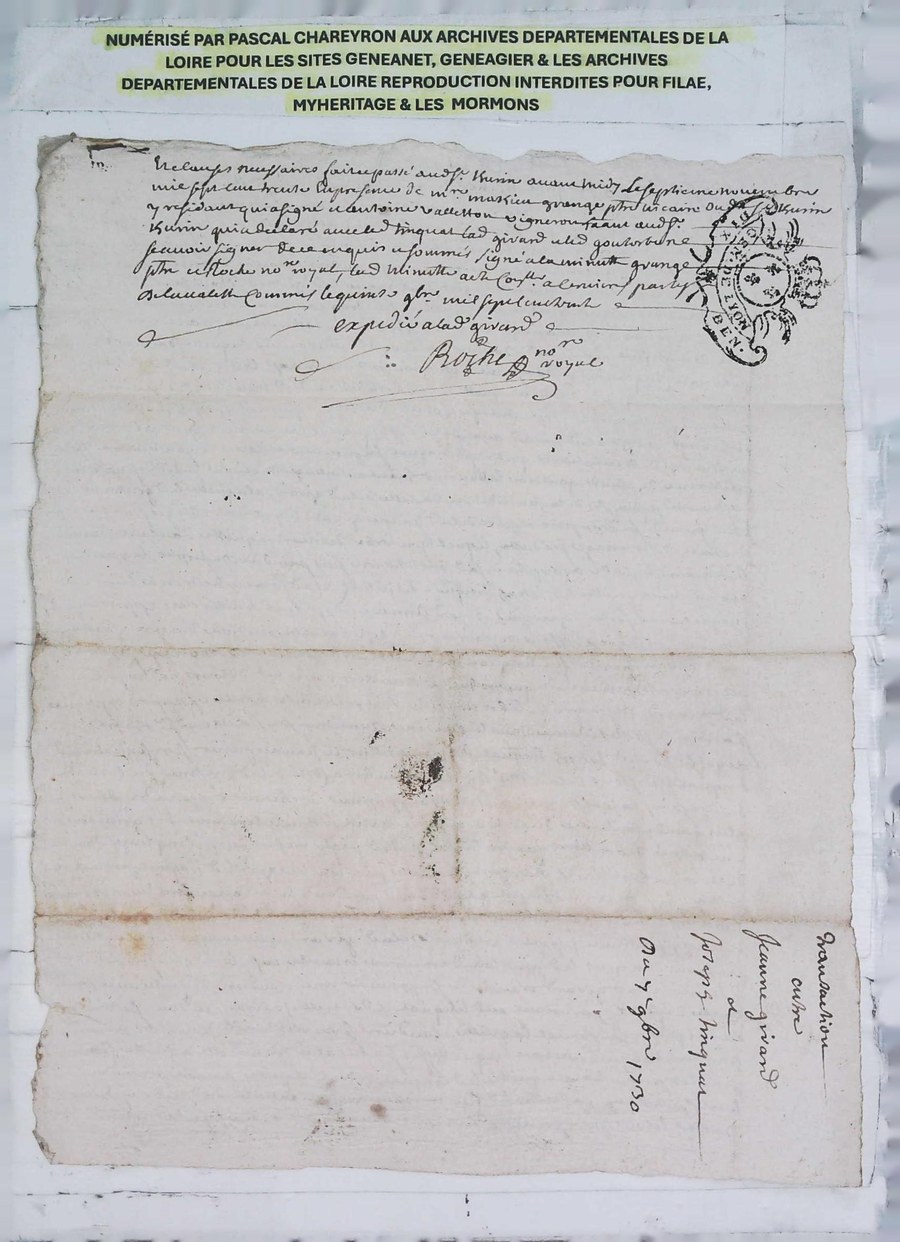 NUMÉRISÉ PAR PASCAL CHAREYRON AUX ARCHIVES DEPARTEMENTALES DE LA
LOIRE POUR LES SITES GENEANET, GENEAGIER & LES ARCHIVES
DEPARTEMENTALES DE LA LOIRE REPRODUCTION INTERDITES POUR FILAE,
MYHERITAGE & LES MORMONS
clauses necessaires fait et passé aud st. Kurin avant midy le septieme novembre
mil sept cent trente en presence de mre. mathieu grange ptre vicaire dud st Kurin
y residant qui a signé et antoine valletton vigneron aud st.
Kurin qui a declaré avec led tinquat lad girard et led goutorbe ne
scavoir signer de ce enquis et sommés signé a la minutte grange
ptre et Roche nore royal, lad minutte a
commis le quinze 9bre mil sept cent trente
expedié a lad girard
Roche nore royal
GEN. DE LYON
Transaction
entre
Jeanne girard
et
Joseph tinquat
Du 7e 9bre 1730